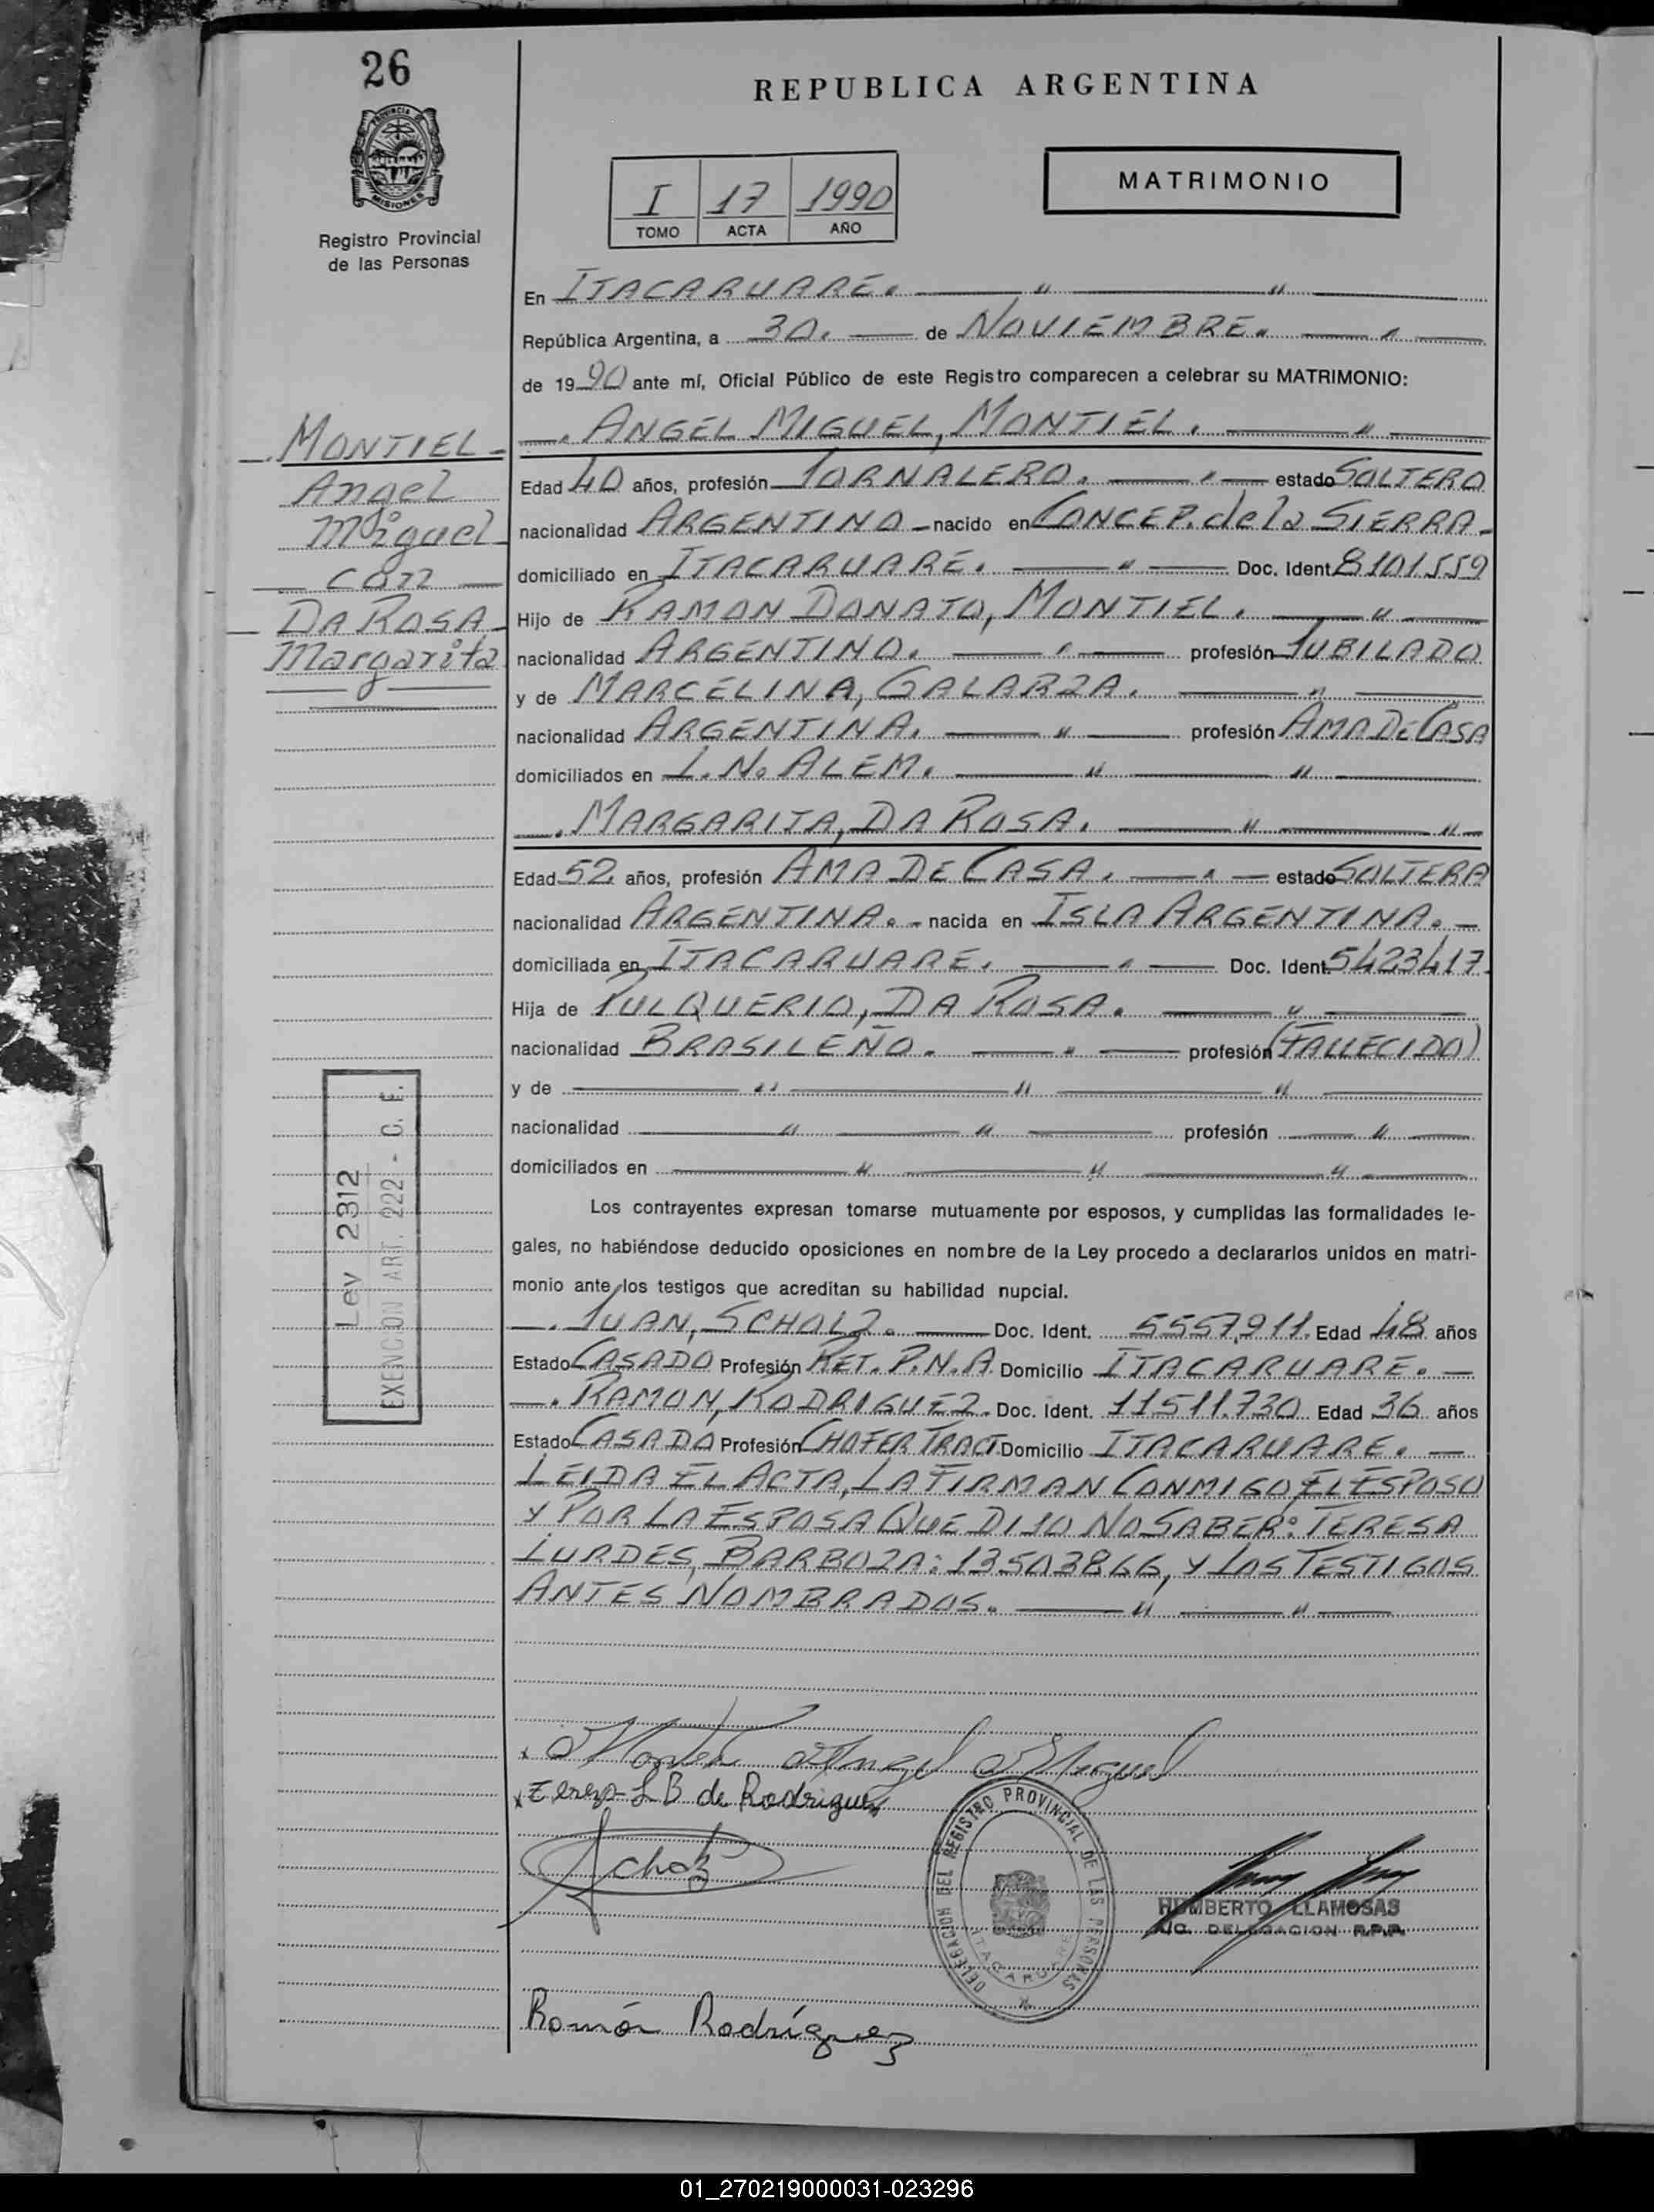 26
REPUBLICA ARGENTINA
PROVINCIA DE
MISIONES
Registro Provincial
de las Personas
I 17 1990
TOMO ACTA AÑO
MATRIMONIO
En ITACARUARE. — " — " —
República Argentina, a 30. — de NOVIEMBRE. — " —
de 1990 ante mí, Oficial Público de este Registro comparecen a celebrar su MATRIMONIO:
—. ANGEL MIGUEL, MONTIEL. — " —
Edad 40 años, profesión JORNALERO. — " — estado SOLTERO
nacionalidad ARGENTINO — nacido en CONCEP. de la SIERRA -
domiciliado en ITACARUARE. — " — Doc. Ident. 8101.559
Hijo de RAMON DONATO, MONTIEL. — " —
nacionalidad ARGENTINO. — " — profesión JUBILADO
y de MARCELINA, GALARZA. — " —
nacionalidad ARGENTINA. — " — profesión AMA DE CASA
domiciliados en L. N. ALEM. — " — " —
—. MARGARITA, DA ROSA. — " — " —
Edad 52 años, profesión AMA DE CASA. — " — estado SOLTERA
nacionalidad ARGENTINA. - nacida en ISLA ARGENTINA. —
domiciliada en ITACARUARE. — " — Doc. Ident. 5.423.417.
Hija de PULQUERIO, DA ROSA. — " —
nacionalidad BRASILEÑO. — " — profesión (FALLECIDO)
y de — " — " — " —
nacionalidad — " — " — profesión — " —
domiciliados en — " — " — " —
Los contrayentes expresan tomarse mutuamente por esposos, y cumplidas las formalidades le-
gales, no habiéndose deducido oposiciones en nombre de la Ley procedo a declararlos unidos en matri-
monio ante los testigos que acreditan su habilidad nupcial.
—. JUAN, SCHOLZ. — Doc. Ident. 5557.911. Edad 48 años
Estado CASADO Profesión RET. P.N.A. Domicilio ITACARUARE. —
—. RAMON, RODRIGUEZ. Doc. Ident. 11511.730 Edad 36 años
Estado CASADO Profesión CHOFER TRACT. Domicilio ITACARUARE. —
LEIDA EL ACTA, LA FIRMAN CONMIGO, EL ESPOSO
Y POR LA ESPOSA QUE DIJO NO SABER: TERESA
LURDES, BARBOZA: 13503866, Y LOS TESTIGOS
ANTES NOMBRADOS. — " — " —
—. MONTIEL -
Angel
Miguel
— con —
— DA ROSA -
Margarita
Ley 2312
EXENCION ART. 222 - C. F.
x Montiel Angel Miguel
x Teresa L B de Rodriguez
Scholz
DELEGACION DEL REGISTRO PROVINCIAL DE LAS PERSONAS
ITACARUARE
HUMBERTO LLAMOSAS
DELEGACION R.P.P.
Ramón Rodríguez
01_270219000031-023296